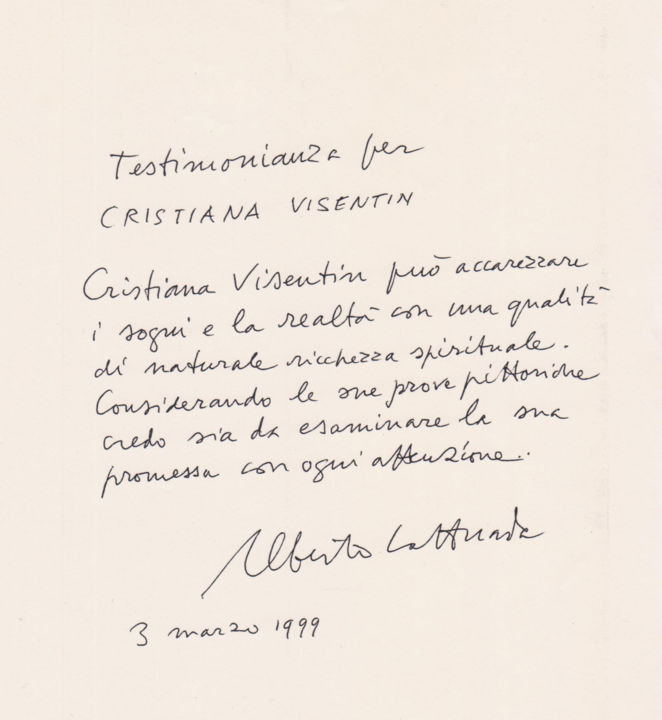 Testimonianza per
CRISTIANA VISENTIN
Cristiana Visentin può accarezzare
i sogni e la realtà con una qualità
di naturale ricchezza spirituale.
Considerando le sue prove pittoriche
credo sia da esaminare la sua
promessa con ogni attenzione..
Alberto Lattuada
3 marzo 1999